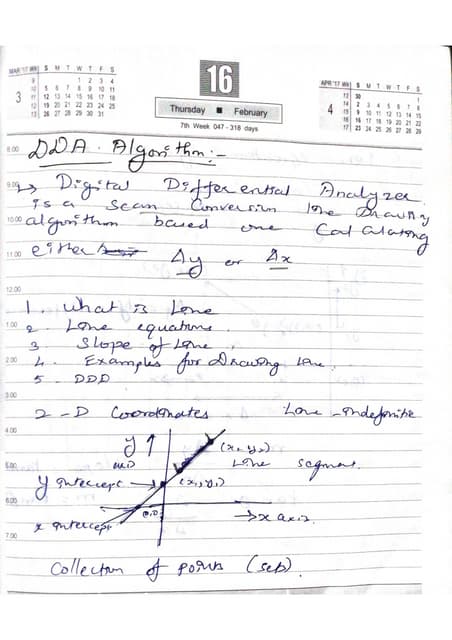 MAR '17 WK S M T W T F S
9 1 2 3 4
10 5 6 7 8 9 10 11
3 11 12 13 14 15 16 17 18
12 19 20 21 22 23 24 25
13 26 27 28 29 30 31
16
Thursday ■ February
7th Week 047 - 318 days
APR '17 WK S M T W T F S
13 30 1
14 2 3 4 5 6 7 8
4 15 9 10 11 12 13 14 15
16 16 17 18 19 20 21 22
17 23 24 25 26 27 28 29
8.00 DDA Algorithm:-
9.00 → Digital Differential Analyzer
is a scan conversion line Drawing
10.00 algorithm based one Calculating
11.00 either Δy or Δx
12.00
1. what is Line
1.00 2. Line equations.
3. Slope of Line.
2.00 4. Examples for Drawing line.
5 - DDD
3.00
2-D Coordinates Line - indefinite
4.00
y ↑ (x2 y2)
5.00 Line segment.
y intercept → (x1, y1)
6.00 (0,0) → x axis.
x intercept
7.00
Collection of points (sets).